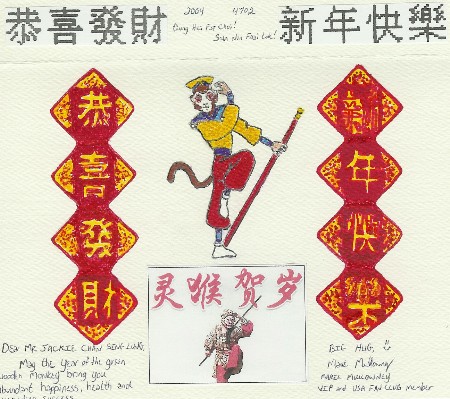 恭喜發財 2004 4702 新年快樂
Gung Hei Fat Choi!
Sun Nin Faai Lok!
恭
喜
發
財
新
年
快
灵猴贺岁
MR. JACKIE CHAN SING LUNG,
May the year of the green
wooden Monkey bring you
abundant happiness, health and
success
BIG HUG,
VIP and USA FAN CLUB member